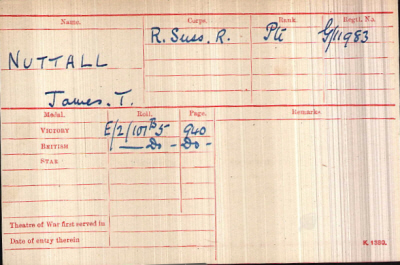 Name. Corps. Rank. Regtl. No.
R. Suss. R. Pte G/11983
NUTTALL
James. T.
Medal. Roll. Page. Remarks.
VICTORY E/2/107B5 940
BRITISH — Do - Do -
STAR
Theatre of War first served in
Date of entry therein
K. 1380.